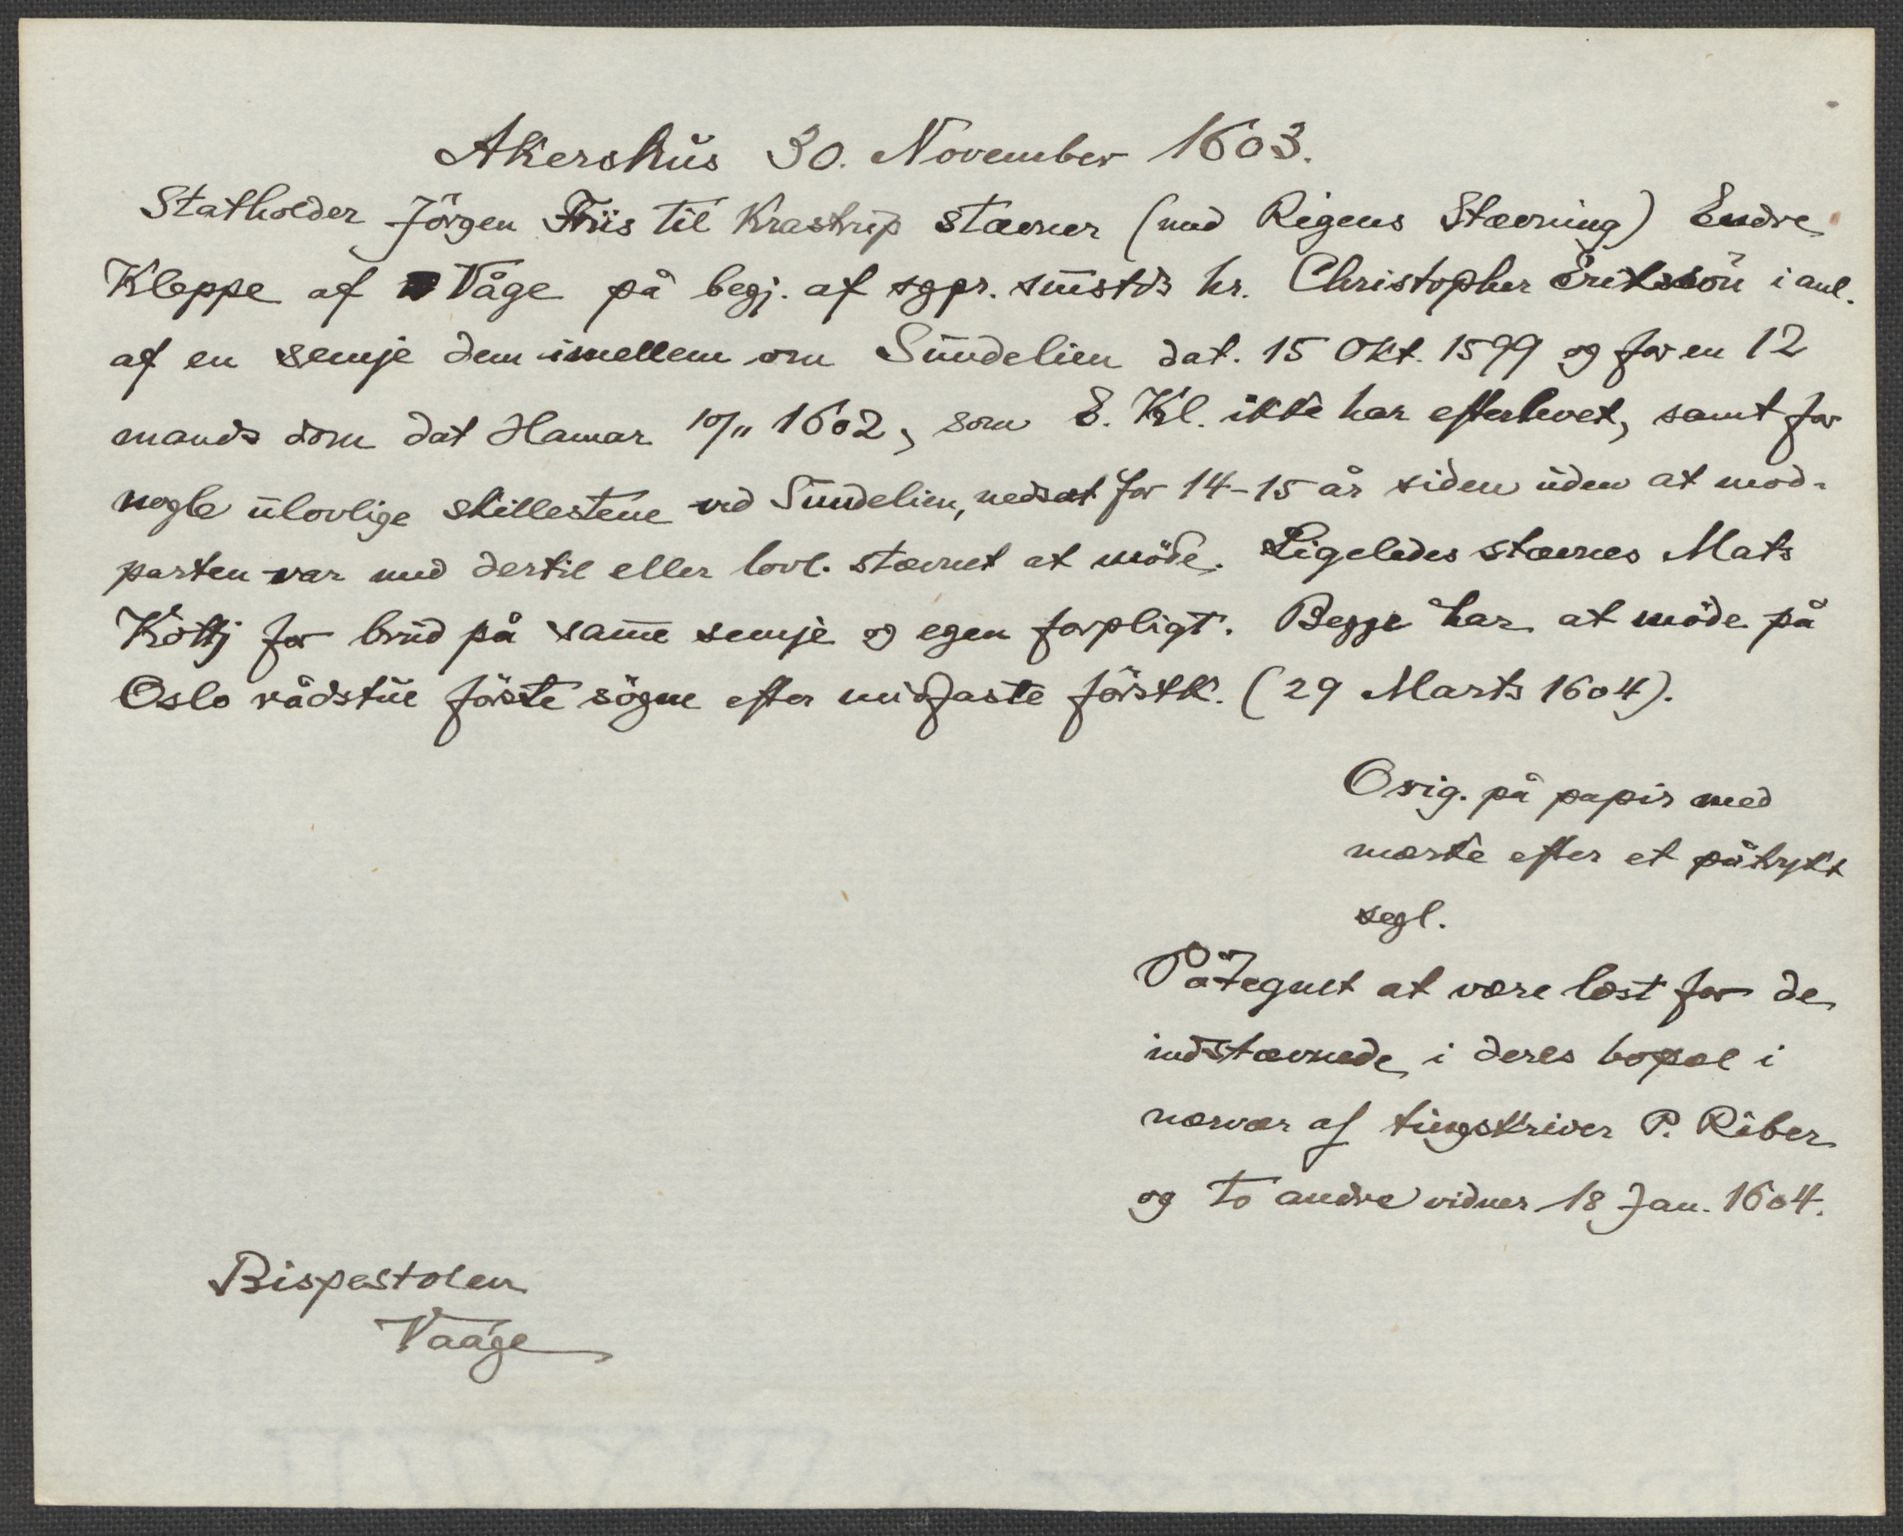 Akershus 30. November 1603.
Statholder Jörgen Friis til Krastrup stævner (med Rigens Stævning) Endre
Kleppe af Våge på begj. af sgpr. smstds hr. Christopher Erikssön i anl.
af en semje dem imellem om Sundelien dat. 15 Okt. 1599 og for en 12
mands dom dat Hamar 10/11 1602, som E. Kl. ikke har efterlevet, samt for
nogle ulovlige skillestene ved Sundelien, nedsat for 14-15 år siden uden at mod-
parten var med dertil eller lovl. stævnet at möde. Ligeledes stævnes Mats
Kottj for brud på samme semje og egen forpligt. Begge har at möde på
Oslo rådstue förste sögne efter midfaste förstk. (29 Marts 1604).
Orig. på papir med
mærke efter et påtrykt
segl.
Påtegnet at være læst for de
indstævnede i deres bopæl i
nærvær af tingskriver P. Riber
og to andre vidner 18 Jan. 1604.
Bispestolen
Vaage